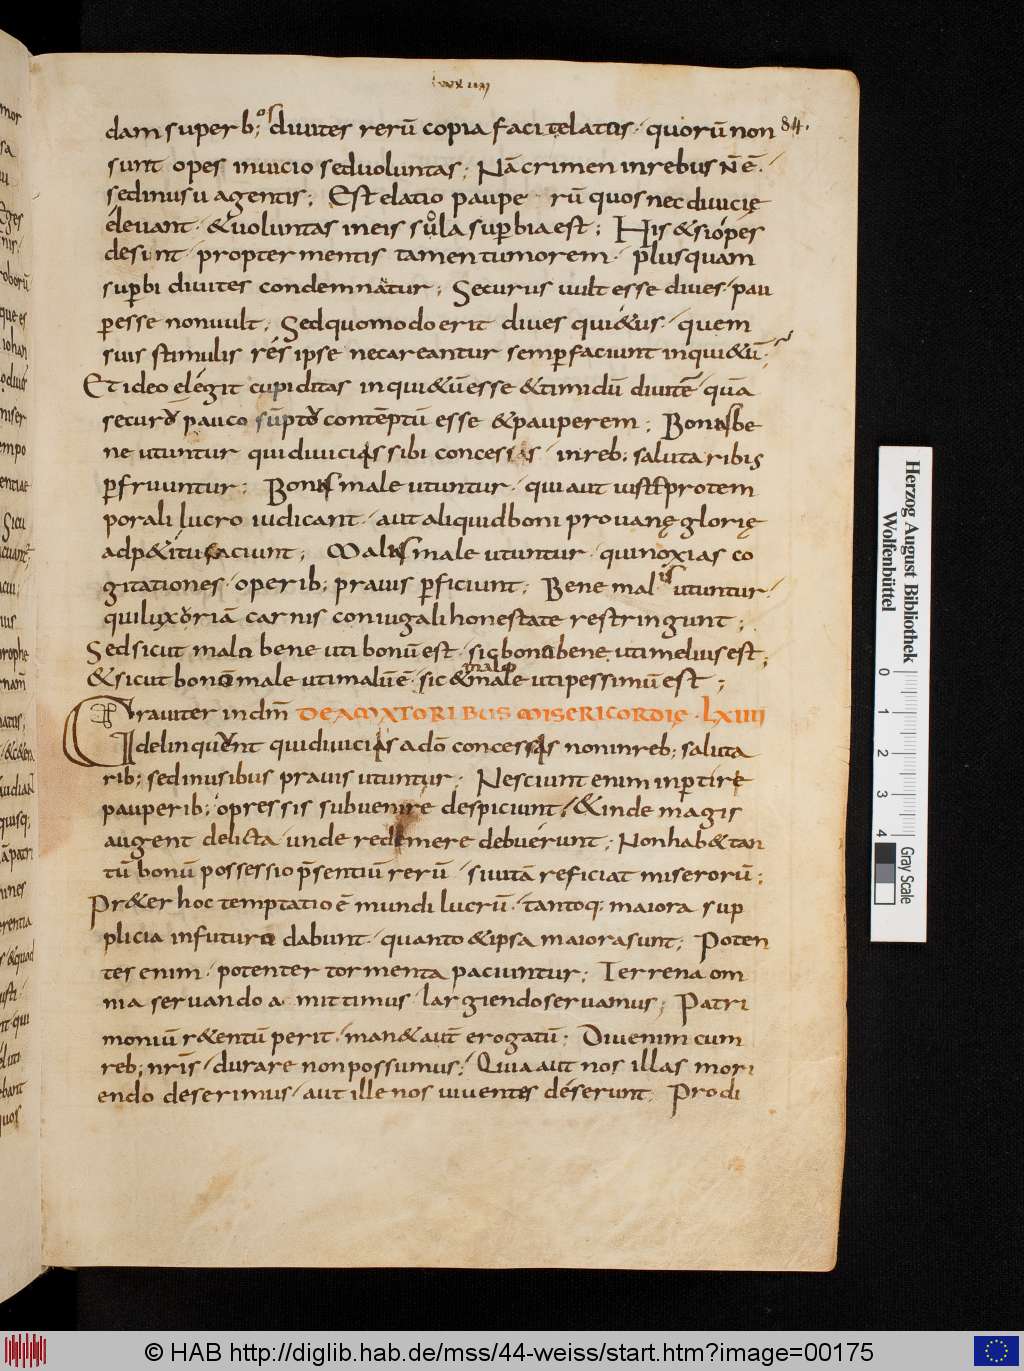 lxxxiiii
84.
dam superb;os diuites rerū copia facit elatus· quorū non
sunt opes in uicio sed uoluntas; Nā crimen in rebus n̄ ē·
sed in usu agentis; Est elatio paupe rū quos nec diuicię
eleuant· & uoluntas in eis sola superbia est; His & si opes
desunt· propter mentis tamen tumorem· plus quam
superbi diuites condemnantur; Securus uult esse diues· pau
per esse non uult; Sed quomodo erit diues qui&us· quem
suis stimulis res ipse ne careantur semper faciunt inqui&ū·
Et ideo elegit cupiditas inqui&ū esse & timidū diuitē· quā
parco sūptu contēptū esse & pauperem; Boni be
ne utuntur qui diuiciis sibi concessis· in reb; salutaribus
perfruuntur; Bonis male utuntur· qui aut iuste pro tem
porali lucro iudicant· aut aliquid boni pro uanę glorię
ad p&itu faciunt; Mali male utuntur· qui noxias co
gitationes· operib; prauis perficiunt; Bene malis utuntur·
qui luxoriā carnis coniugali honestate restringunt;
Sed sicut malo bene uti bonū est· sic bono bene uti melius est;
& sicut bono male uti malū ē· sic & malo male uti pessimū est;
DE AMATORIBUS MISERICORDIĘ· LXIIII
Grauiter in dm̄
delinquunt qui diuiciis a dō concessis non in reb; saluta
rib; sed in usibus prauis utuntur; Nesciunt enim inpertire
pauperib; opressis subuenire despiciunt; & inde magis
augent delicta· unde redimere debuerunt; Non hab& tan
tū bonū possessio p̄sentiū rerū· si uitā reficiat miserorū;
Pr&er hoc temptatio ē mundi lucrū· tantoq; maiora sup
plicia in futuro dabunt· quanto & ipsa maiora sunt; Poten
tes enim· potenter tormenta paciuntur; Terrena om
nia seruando amittimus· largiendo seruamus; Patri
moniū r&entū perit· man& aut̄ erogatū; Diu enim cum
reb; nr̄is· durare non possumus; Quia aut nos illas mori
endo deserimus· aut ille nos uiuentes deserunt; Pro di
Herzog August Bibliothek
Wolfenbüttel
0 1 2 3 4
Gray Scale
© HAB http://diglib.hab.de/mss/44-weiss/start.htm?image=00175